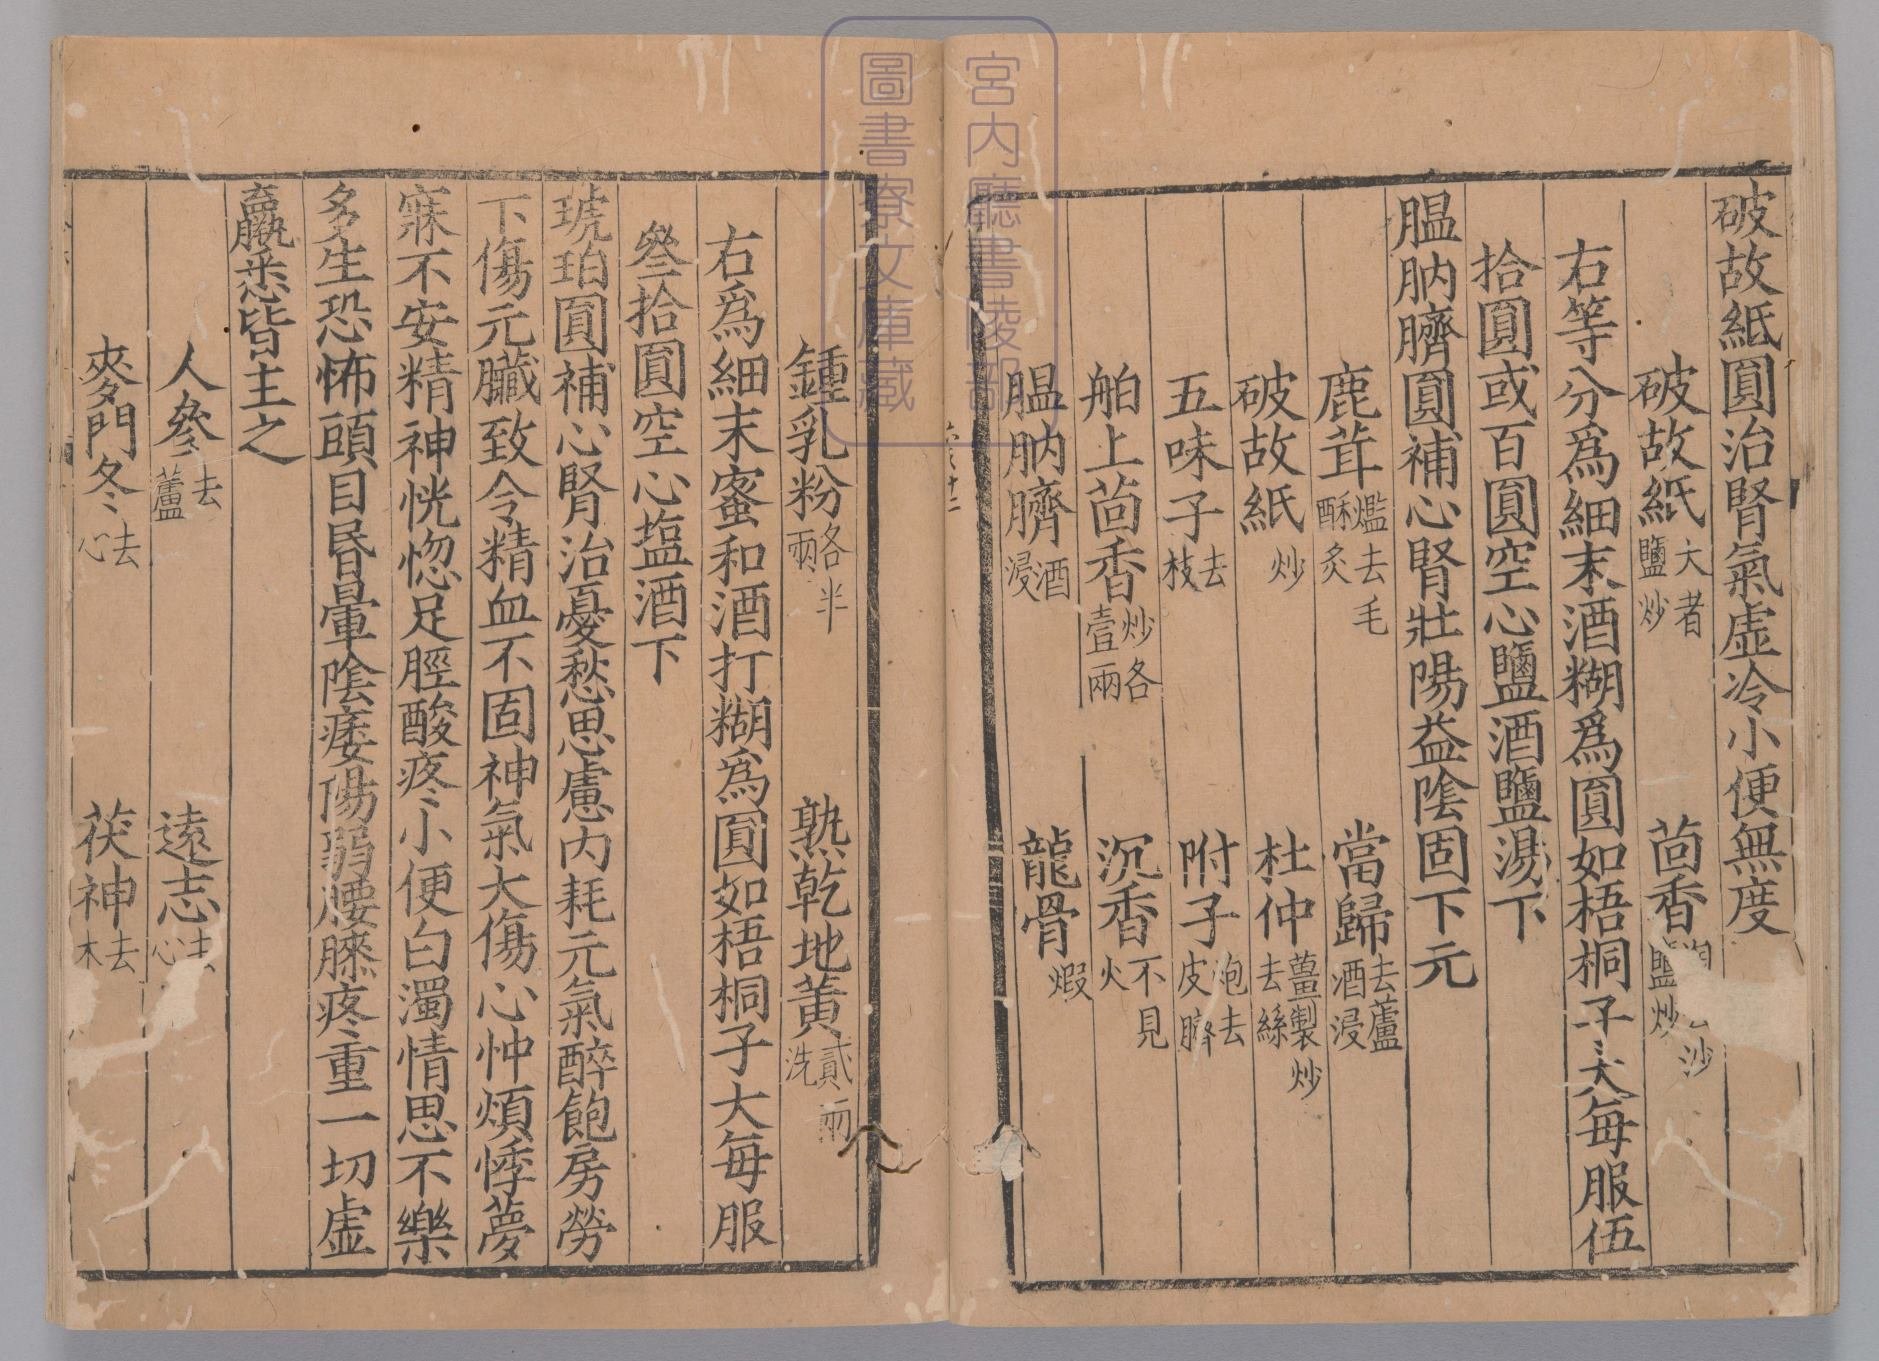 破故紙圓治腎氣虛冷小便無度
破故紙大者鹽炒　茴香鹽炒
右等分爲細末酒糊爲圓如梧桐子大每服伍
拾圓或百圓空心鹽酒鹽湯下
膃肭臍圓補心腎壯陽益陰固下元
鹿茸爁去毛酥炙　當歸去蘆酒浸
破故紙炒　杜仲薑製炒去絲
五味子去枝　附子炮去皮臍
舶上茴香炒各壹兩　沉香不見火
膃肭臍酒浸　龍骨煅
鍾乳粉各半兩　熟乾地黃貳兩洗
右爲細末蜜和酒打糊爲圓如梧桐子大每服
叄拾圓空心塩酒下
琥珀圓補心腎治憂愁思慮內耗元氣醉飽房勞
下傷元臟致令精血不固神氣大傷心忡煩悸夢
寐不安精神恍惚足脛酸疼小便白濁情思不樂
多生恐怖頭目昏暈陰痿陽弱腰膝疼重一切虛
羸悉皆主之
人參去蘆　遠志去心
麥門冬去心　茯神去木
宮內廳書陵部
圖書寮文庫藏